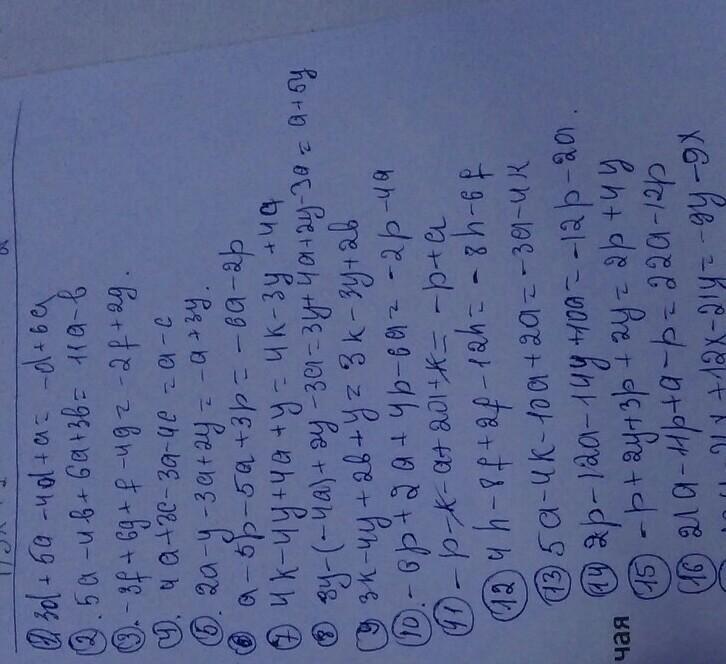 1) 3d + 5a - 4d + a = -d + 6a
2. 5a - 4b + 6a + 3b = 11a - b
3. -3f + 6g + f - 4g = -2f + 2g.
4). 4a + 3c - 3a - 4c = a - c
5. 2a - y - 3a + 2y = -a + 3y.
6 a - 5p - 5a + 3p = -6a - 2p
7 4k - 4y + 4a + y = 4k - 3y + 4a
8 3y - (-4a) + 2y - 3a = 3y + 4a + 2y - 3a = a + 5y
9 3k - 4y + 2b + y = 3k - 3y + 2b
10. -6p + 2a + 4p - 6a = -2p - 4a
11 -p - k - a + 2a + k = -p + a
12 4h - 8f + 2f - 12h = -8h - 6f
13 5a - 4k - 10a + 2a = -3a - 4k
14 2p - 12a - 14y + 10a = -12p - 2a.
15 -p + 2y + 3p + 2y = 2p + 4y
16 21a - 11p + a - p = 22a - 12p
+ 12x - 21y = -9y - 9x
чая